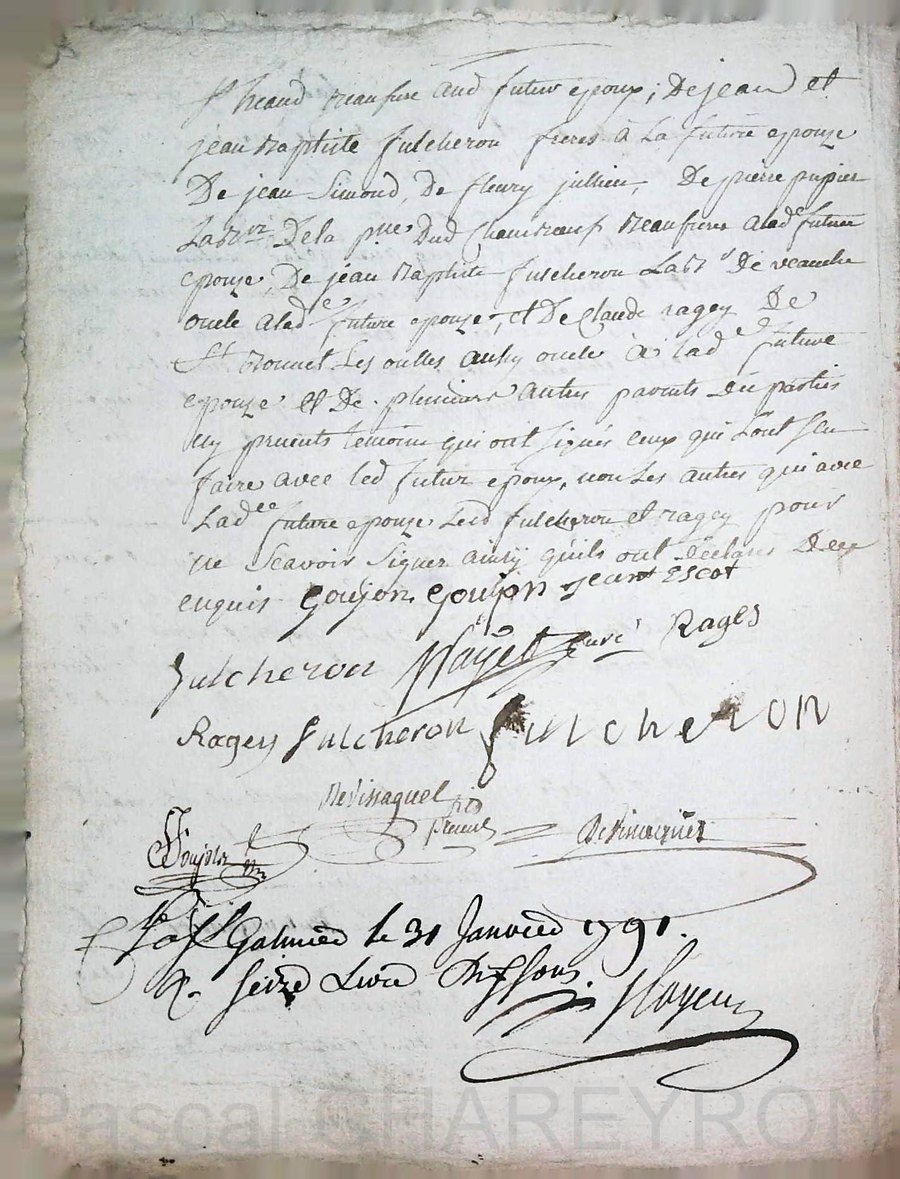 St heand Beaufrere aud futur epoux, De jean et
jean Baptiste fulcheron freres à La future epouze
De jean Simond, De fleury jullien, De pierre pupier
Labr De la psse Dud Beaufreres alade future
epouze, De jean Baptiste fulcheron Labr De veauche
oncle a lade future epouze, et De Claude ragey De
St Bonnet Les oulles aussy oncle à lade future
epouze et De plusieurs autres parents Des parties
icy presents temoins qui ont signés ceux qui l'ont sceu
faire avec led futur epoux, non Les autres qui avec
Ladee future epouze Lesd fulcheron et ragey pour
ne Scavoir Signer ainsy qu'ils ont Declaré De ce
enquis Goujon Goujon jean Escot
fulcheron curé Rages
Ragey fulcheron fulcheron
present
Goujon
C. a St Galmier le 31 Janvier 1791.
R. seize Livre Dix sous.